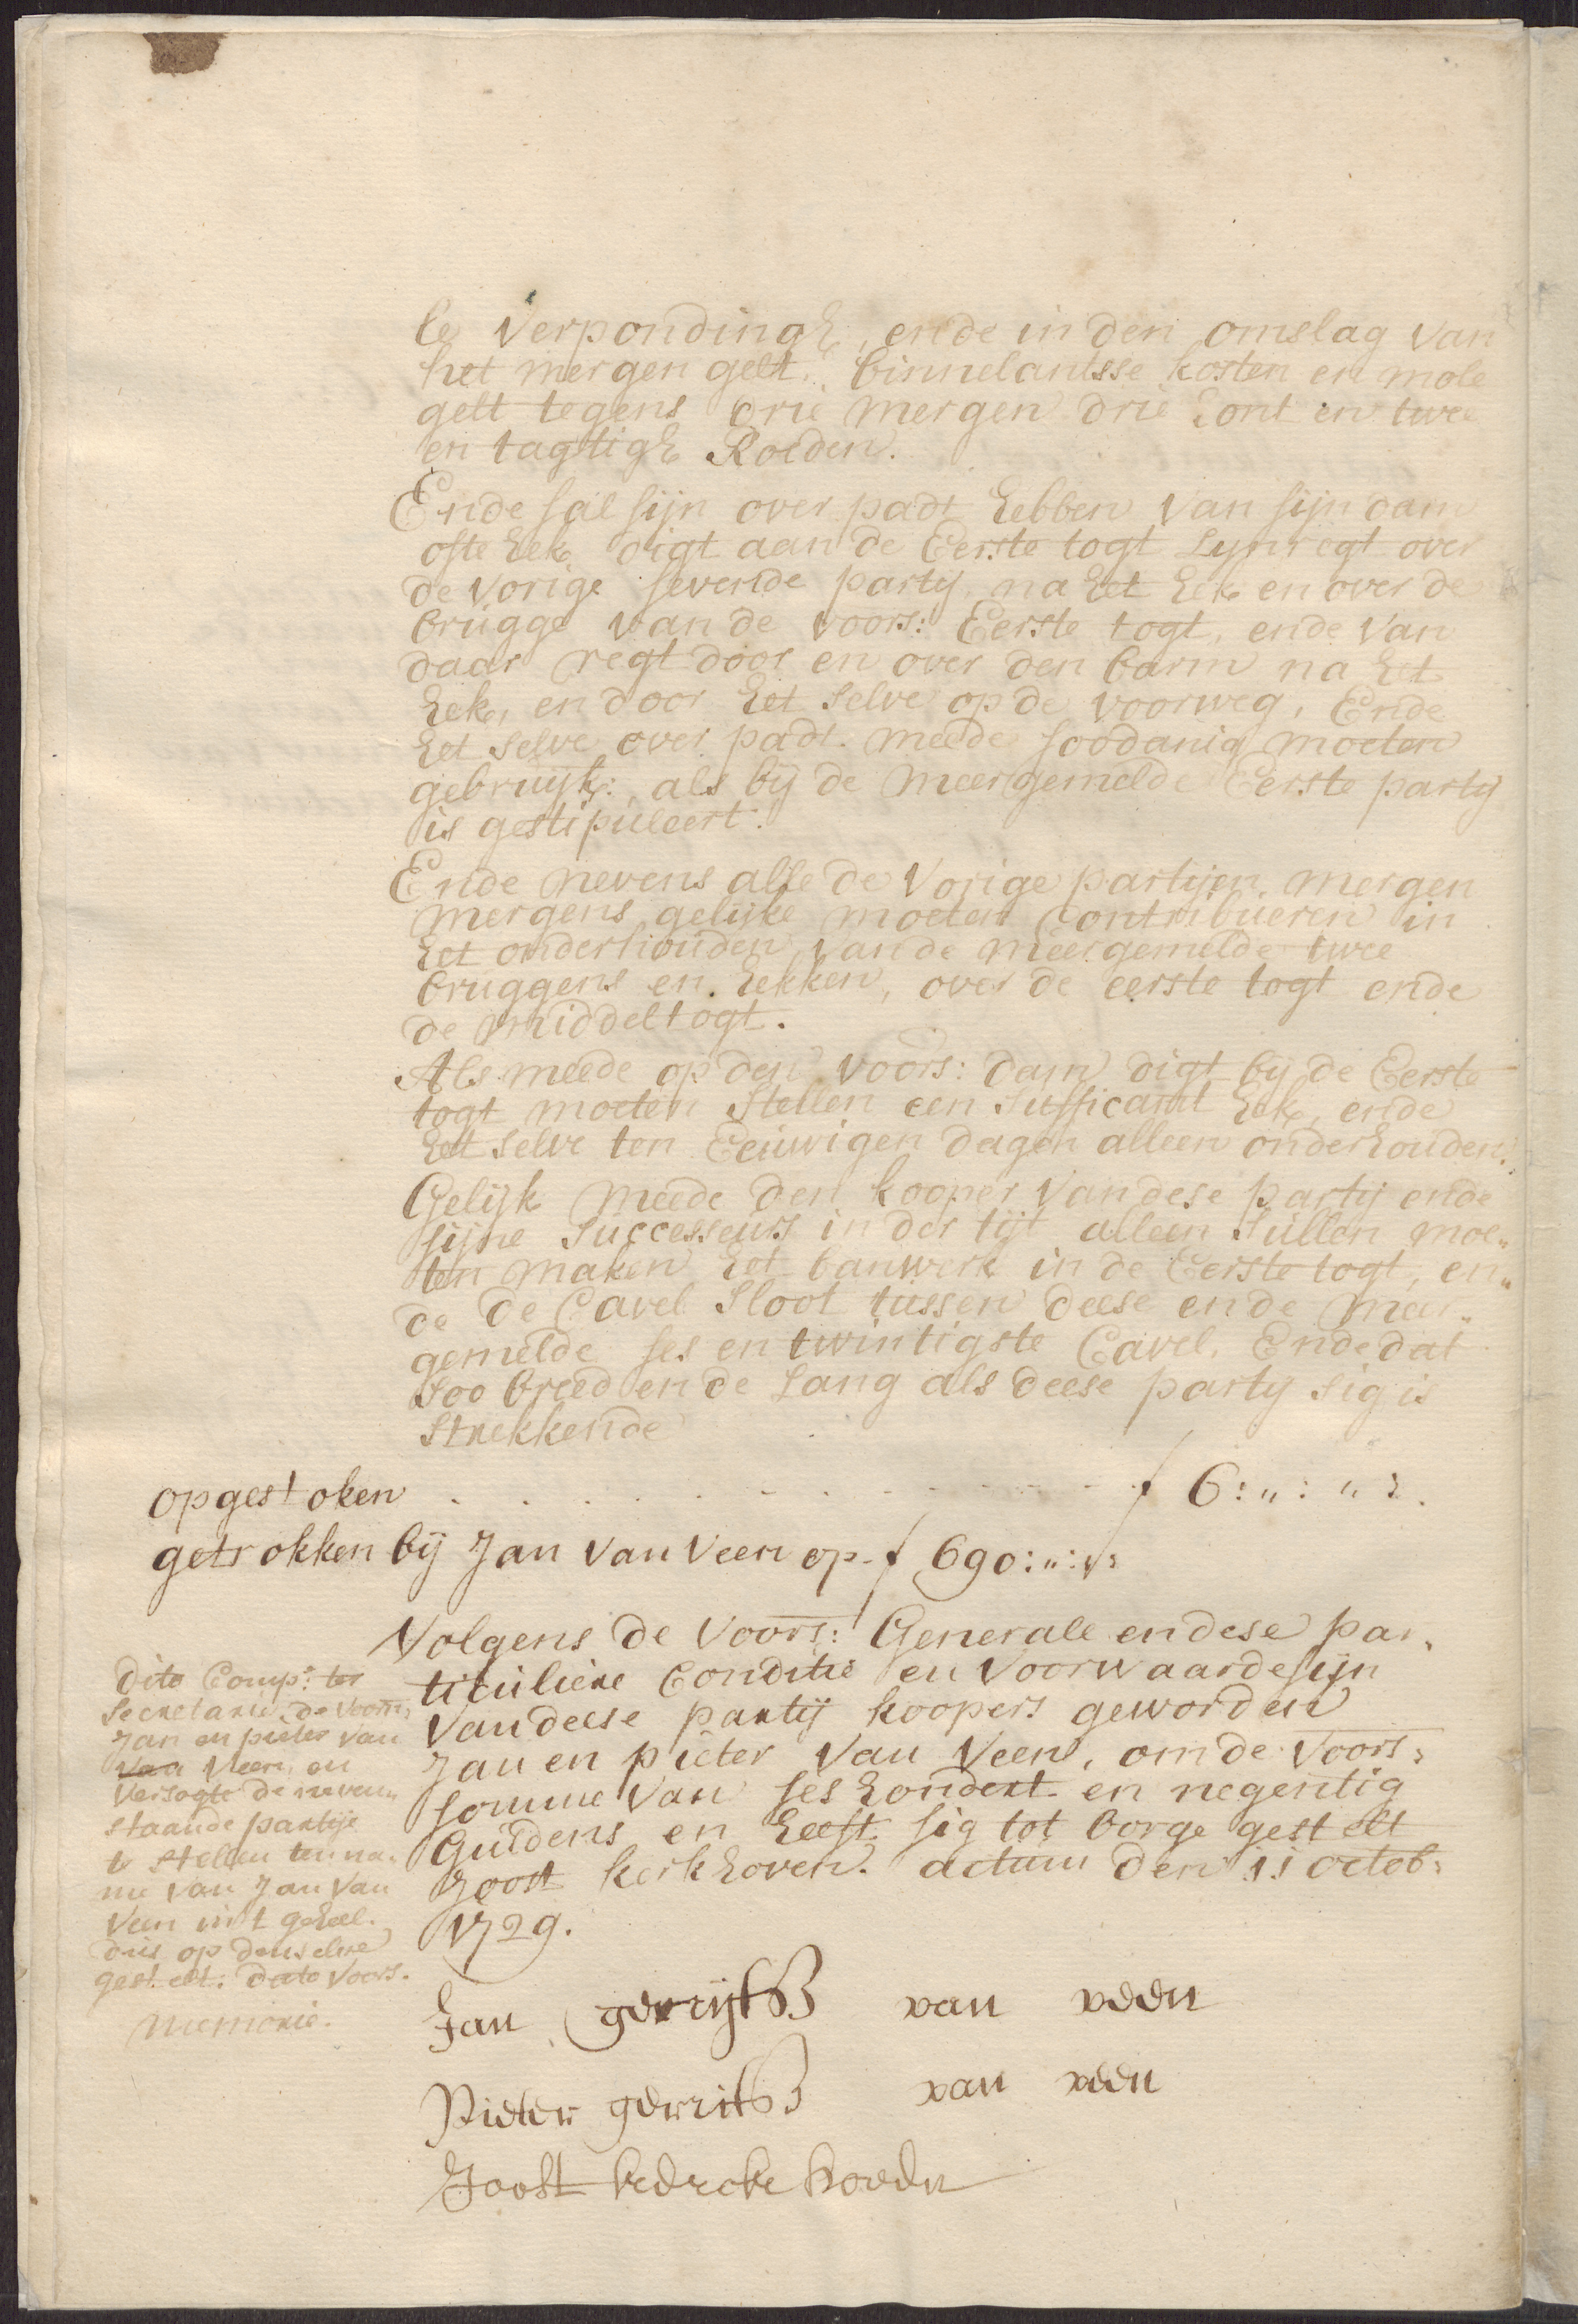 le Verpondingh, ende in den omslag van
het mergen gelt. binnelantsse kosten en mole
gelt tegens drie mergen drie hont en twee
en tagtigh Roeden.
Ende sal sijn over padt hebben van sijn dam
ofte hek digt aan de Eerste togt Lynregt over
de vorige sevende party, na het hek en over de
brugge van de voors: Eerste togt, ende van
daar regt door en over den barm na het
hek, en door het selve op de voorweg, Ende
het selve over padt meede soodanig moeten
gebruijk: als bij de meergemelde Eerste party
is gestipuleert.
Ende nevens alle de Vorige partijen mergen
mergens gelijke moeten Contribueren in
het onderhouden van de meergemelde twee
bruggens en hekken, over de eerste togt ende
de middeltogt.
Als meede op den voors: dam digt by de Eerste
togt moeten Stellen een sufficant hek, ende
het selve ten Eeuwigen dagen alleen onderhouden.
Gelijk meede den kooper van dese party ende
sijne Successeurs in der tijt alleen Sullen moe„
ten maken het banwerk in de Eerste togt, en„
de de Cavel Sloot tussen deese ende meer„
gemelde ses en twintigste Cavel. Ende dat
soo breed ende Lang als deese party sig is
strekkende
opgestoken . . . . . . . . . . . f 6:„:„:
getrokken bij Jan van Veen op f 690:„:„:
Volgens de voors: Generale en dese par„
ticuliere Conditie en Voorwaarde sijn
van deese partij koopers geworden
Jan en pieter van Veen, om de voors:
somme van ses hondert en negentig
Guldens en heeft sig tot borge gestelt
Joost kerkhoven. actum den 11 octob:
1729.
dito Comp: ter
Secretarie de voorn:
Jan en pieter van
van Veen, en
versogte de neven„
staande partije
te stellen ten na„
me van Jan van
Veen in 't geheel.
dus op denselve
gestelt. dato voors.
memorie.
Jan gerrijtß van veen
Pieter gerritß van veen
Joost kerckhoven